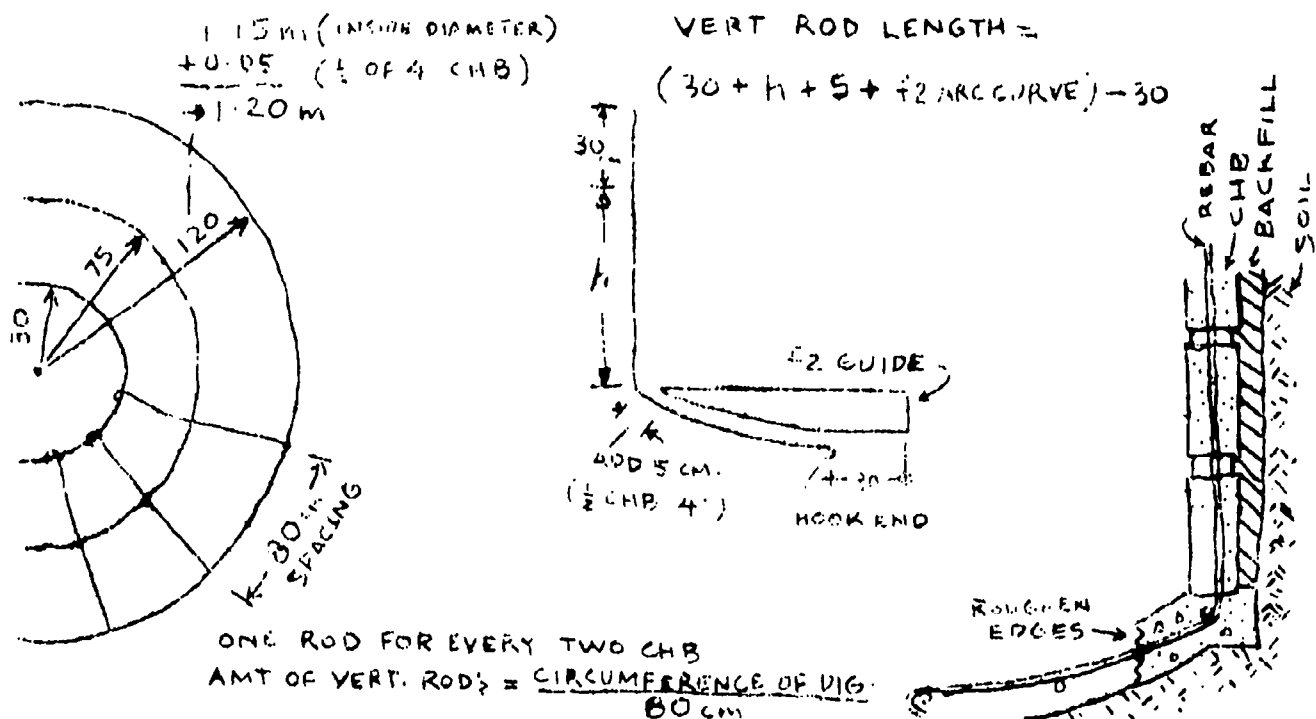 1.15 m (INSIDE DIAMETER)
+0.05 (½ OF 4 CHB)
→ 1.20 m
VERT ROD LENGTH =
(30 + h + 5 + f2 ARC CURVE) - 30
30
5
h
75
120
30
f2 GUIDE
ADD 5 CM.
(½ CHB 4")
30
HOOK END
80 cm
SPACING
REBAR
CHB
BACKFILL
SOIL
ROUGHEN
EDGES
ONE ROD FOR EVERY TWO CHB
AMT OF VERT. RODS = CIRCUMFERENCE OF DIG.
80 cm